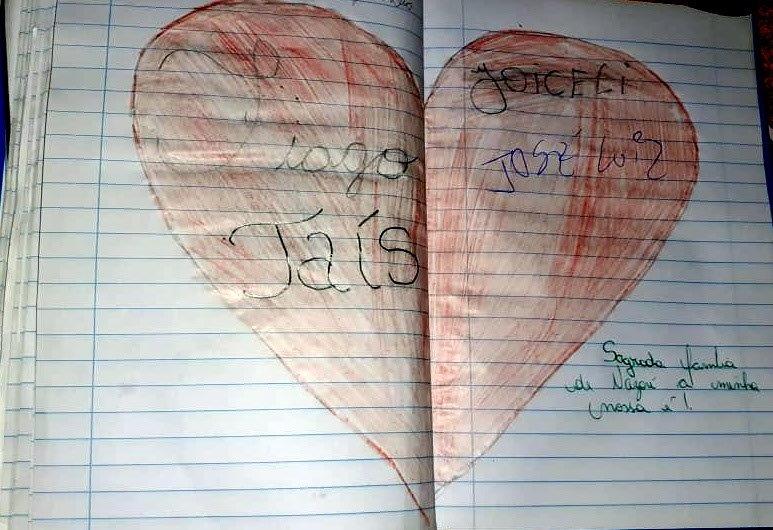 Tiago
Taís
JOICELI
JOSÉ LUIZ
Sagrada família
de Nazaré a minha
nossa é!